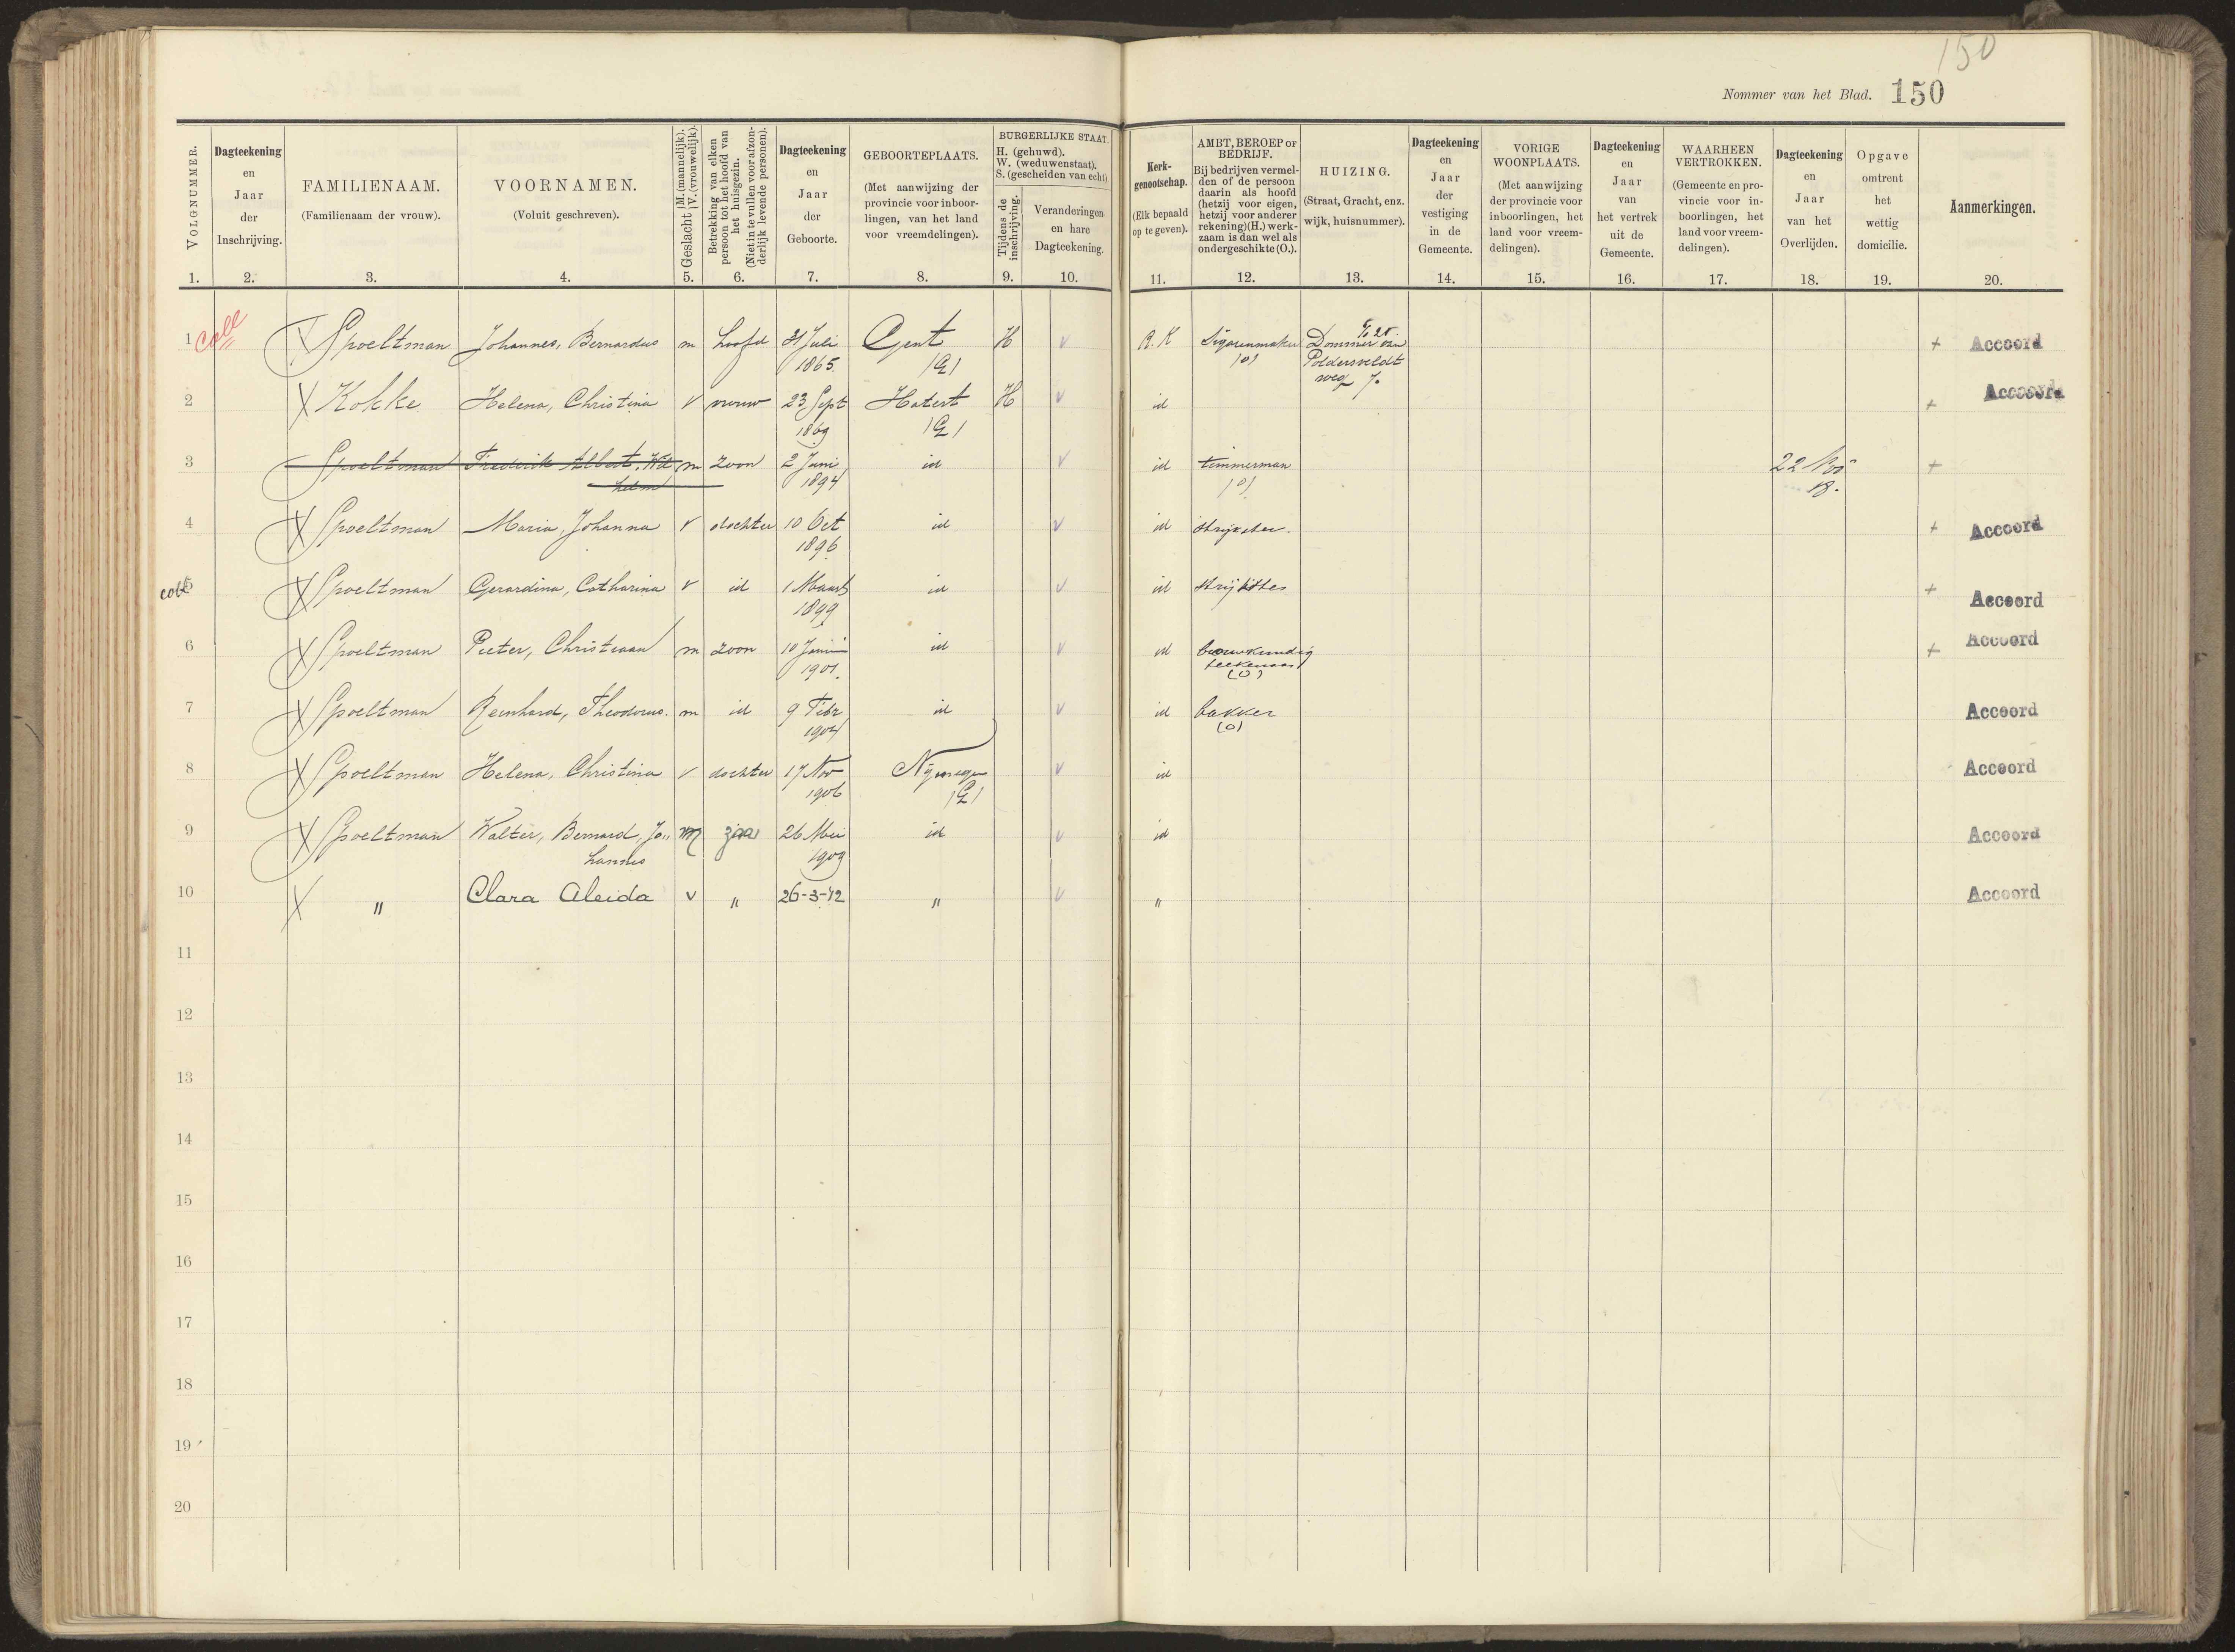 150
Nommer van het Blad. 150
VOLGNUMMER.
Dagteekening en Jaar der Inschrijving.
FAMILIENAAM. (Familienaam der vrouw).
VOORNAMEN. (Voluit geschreven).
Geslacht M. (mannelijk). V. (vrouwelijk).
Betrekking van elken persoon tot het hoofd van het huisgezin. (Niet in te vullen voor afzonderlijk levende personen).
Dagteekening en Jaar der Geboorte.
GEBOORTEPLAATS. (Met aanwijzing der provincie voor inboorlingen, van het land voor vreemdelingen).
BURGERLIJKE STAAT. H. (gehuwd). W. (weduwenstaat). S. (gescheiden van echt).
Tijdens de inschrijving.
Veranderingen en hare Dagteekening.
Kerkgenootschap. (Elk bepaald op te geven).
AMBT, BEROEP OF BEDRIJF. Bij bedrijven vermelden of de persoon daarin als hoofd (hetzij voor eigen, hetzij voor anderer rekening) (H.) werkzaam is dan wel als ondergeschikte (O.).
HUIZING. (Straat, Gracht, enz. wijk, huisnummer).
Dagteekening en Jaar der vestiging in de Gemeente.
VORIGE WOONPLAATS. (Met aanwijzing der provincie voor inboorlingen, het land voor vreemdelingen).
Dagteekening en Jaar van het vertrek uit de Gemeente.
WAARHEEN VERTROKKEN. (Gemeente en provincie voor inboorlingen, het land voor vreemdelingen).
Dagteekening en Jaar van het Overlijden.
Opgave omtrent het wettig domicilie.
Aanmerkingen.
1. 2. 3. 4. 5. 6. 7. 8. 9. 10. 11. 12. 13. 14. 15. 16. 17. 18. 19. 20.
1 Spoeltman Johannes, Bernardus m hoofd 31 Juli 1865 Gent (G) H v R.K Sigarenmaker (o) Dommer van Poldersveldt weg 7. + Accoord
2 Kokke Helena, Christina v vrouw 23 Sept 1869 Hatert (G) H v id + Accoord
3 Spoeltman Frederik Albert, Wilhelm m zoon 2 Juni 1894 id v id timmerman (o) 22 18. +
4 Spoeltman Maria, Johanna v dochter 10 Oct 1896 id v id strijkster. + Accoord
5 Spoeltman Gerardina, Catharina v id 1 Maart 1899 id v id + Accoord
6 Spoeltman Pieter, Christiaan m zoon 10 Juni 1901. id v id bouwkundig teekenaar (o) + Accoord
7 Spoeltman Reinhard, Theodorus. m id 9 Febr 1904 id v id bakker (o) Accoord
8 Spoeltman Helena, Christina v dochter 17 Nov 1906 Nijmegen (G) v id Accoord
9 Spoeltman Walter, Bernard, Johannes m 26 Mei 1909 id v id Accoord
10 " Clara Aleida v " 26-3-12 " v " Accoord
11
12
13
14
15
16
17
18
19
20